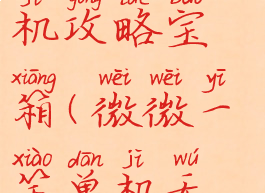 jī gōng lüè bǎo
机攻略宝
xiāng wēi wēi yī
箱(微微一
xiào dān jī wú
笑单机无